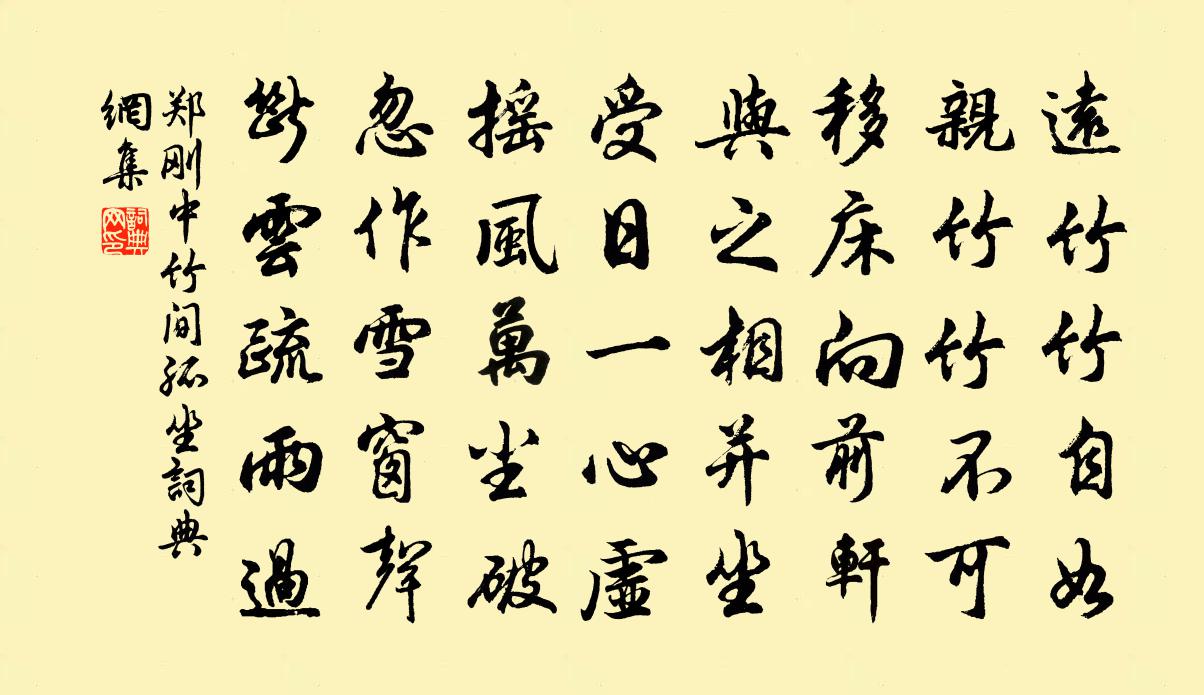 遠竹竹自如
親竹竹不可
移床向前軒
與之相并坐
受日一心虛
摇風萬尘破
忽作雪窗聲
斷雲疏雨過
郑刚中竹间孤坐詞典
網集
詞典
网印